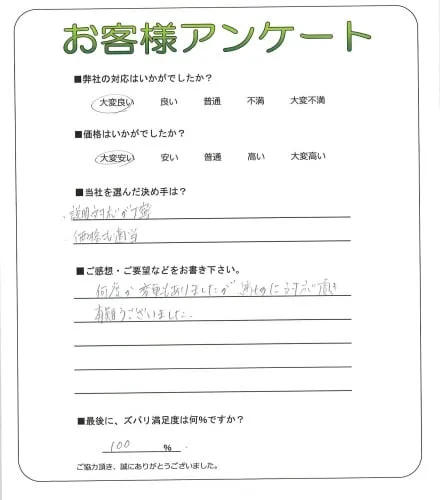 お客様アンケート
■弊社の対応はいかがでしたか?
大変良い 良い 普通 不満 大変不満
■価格はいかがでしたか?
大変安い 安い 普通 高い 大変高い
■当社を選んだ決め手は?
・説明対応が丁寧
・価格も適当
■ご感想・ご要望などをお書き下さい。
何度か変更もありましたが 速やかに対応頂き
有難うございました。
■最後に、ズバリ満足度は何%ですか?
100 %
ご協力頂き、誠にありがとうございました。